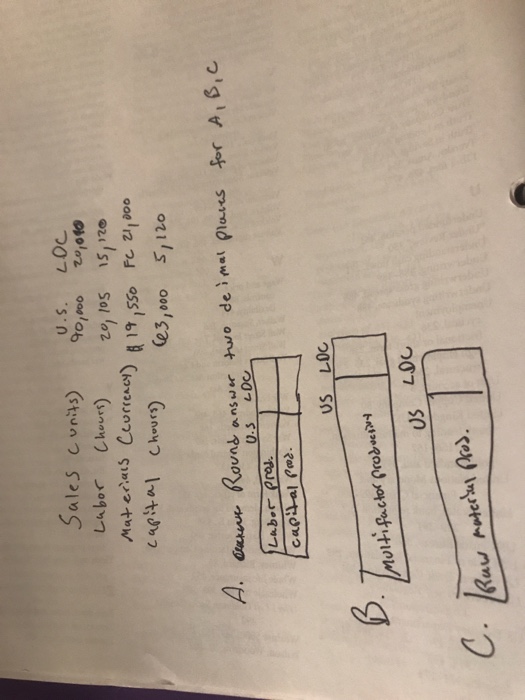 U.S. LDC
Sales (units) 90,000 20,010
Labor (hours) 20,105 15,120
Materials (currency) $19,550 FC 21,000
capital (hours) 63,000 5,120
A. Round answer two decimal places for A, B, C
U.S LDC
Labor prod.
capital prod.
US LDC
B. Multifactor productivity
US LDC
C. Raw material prod.